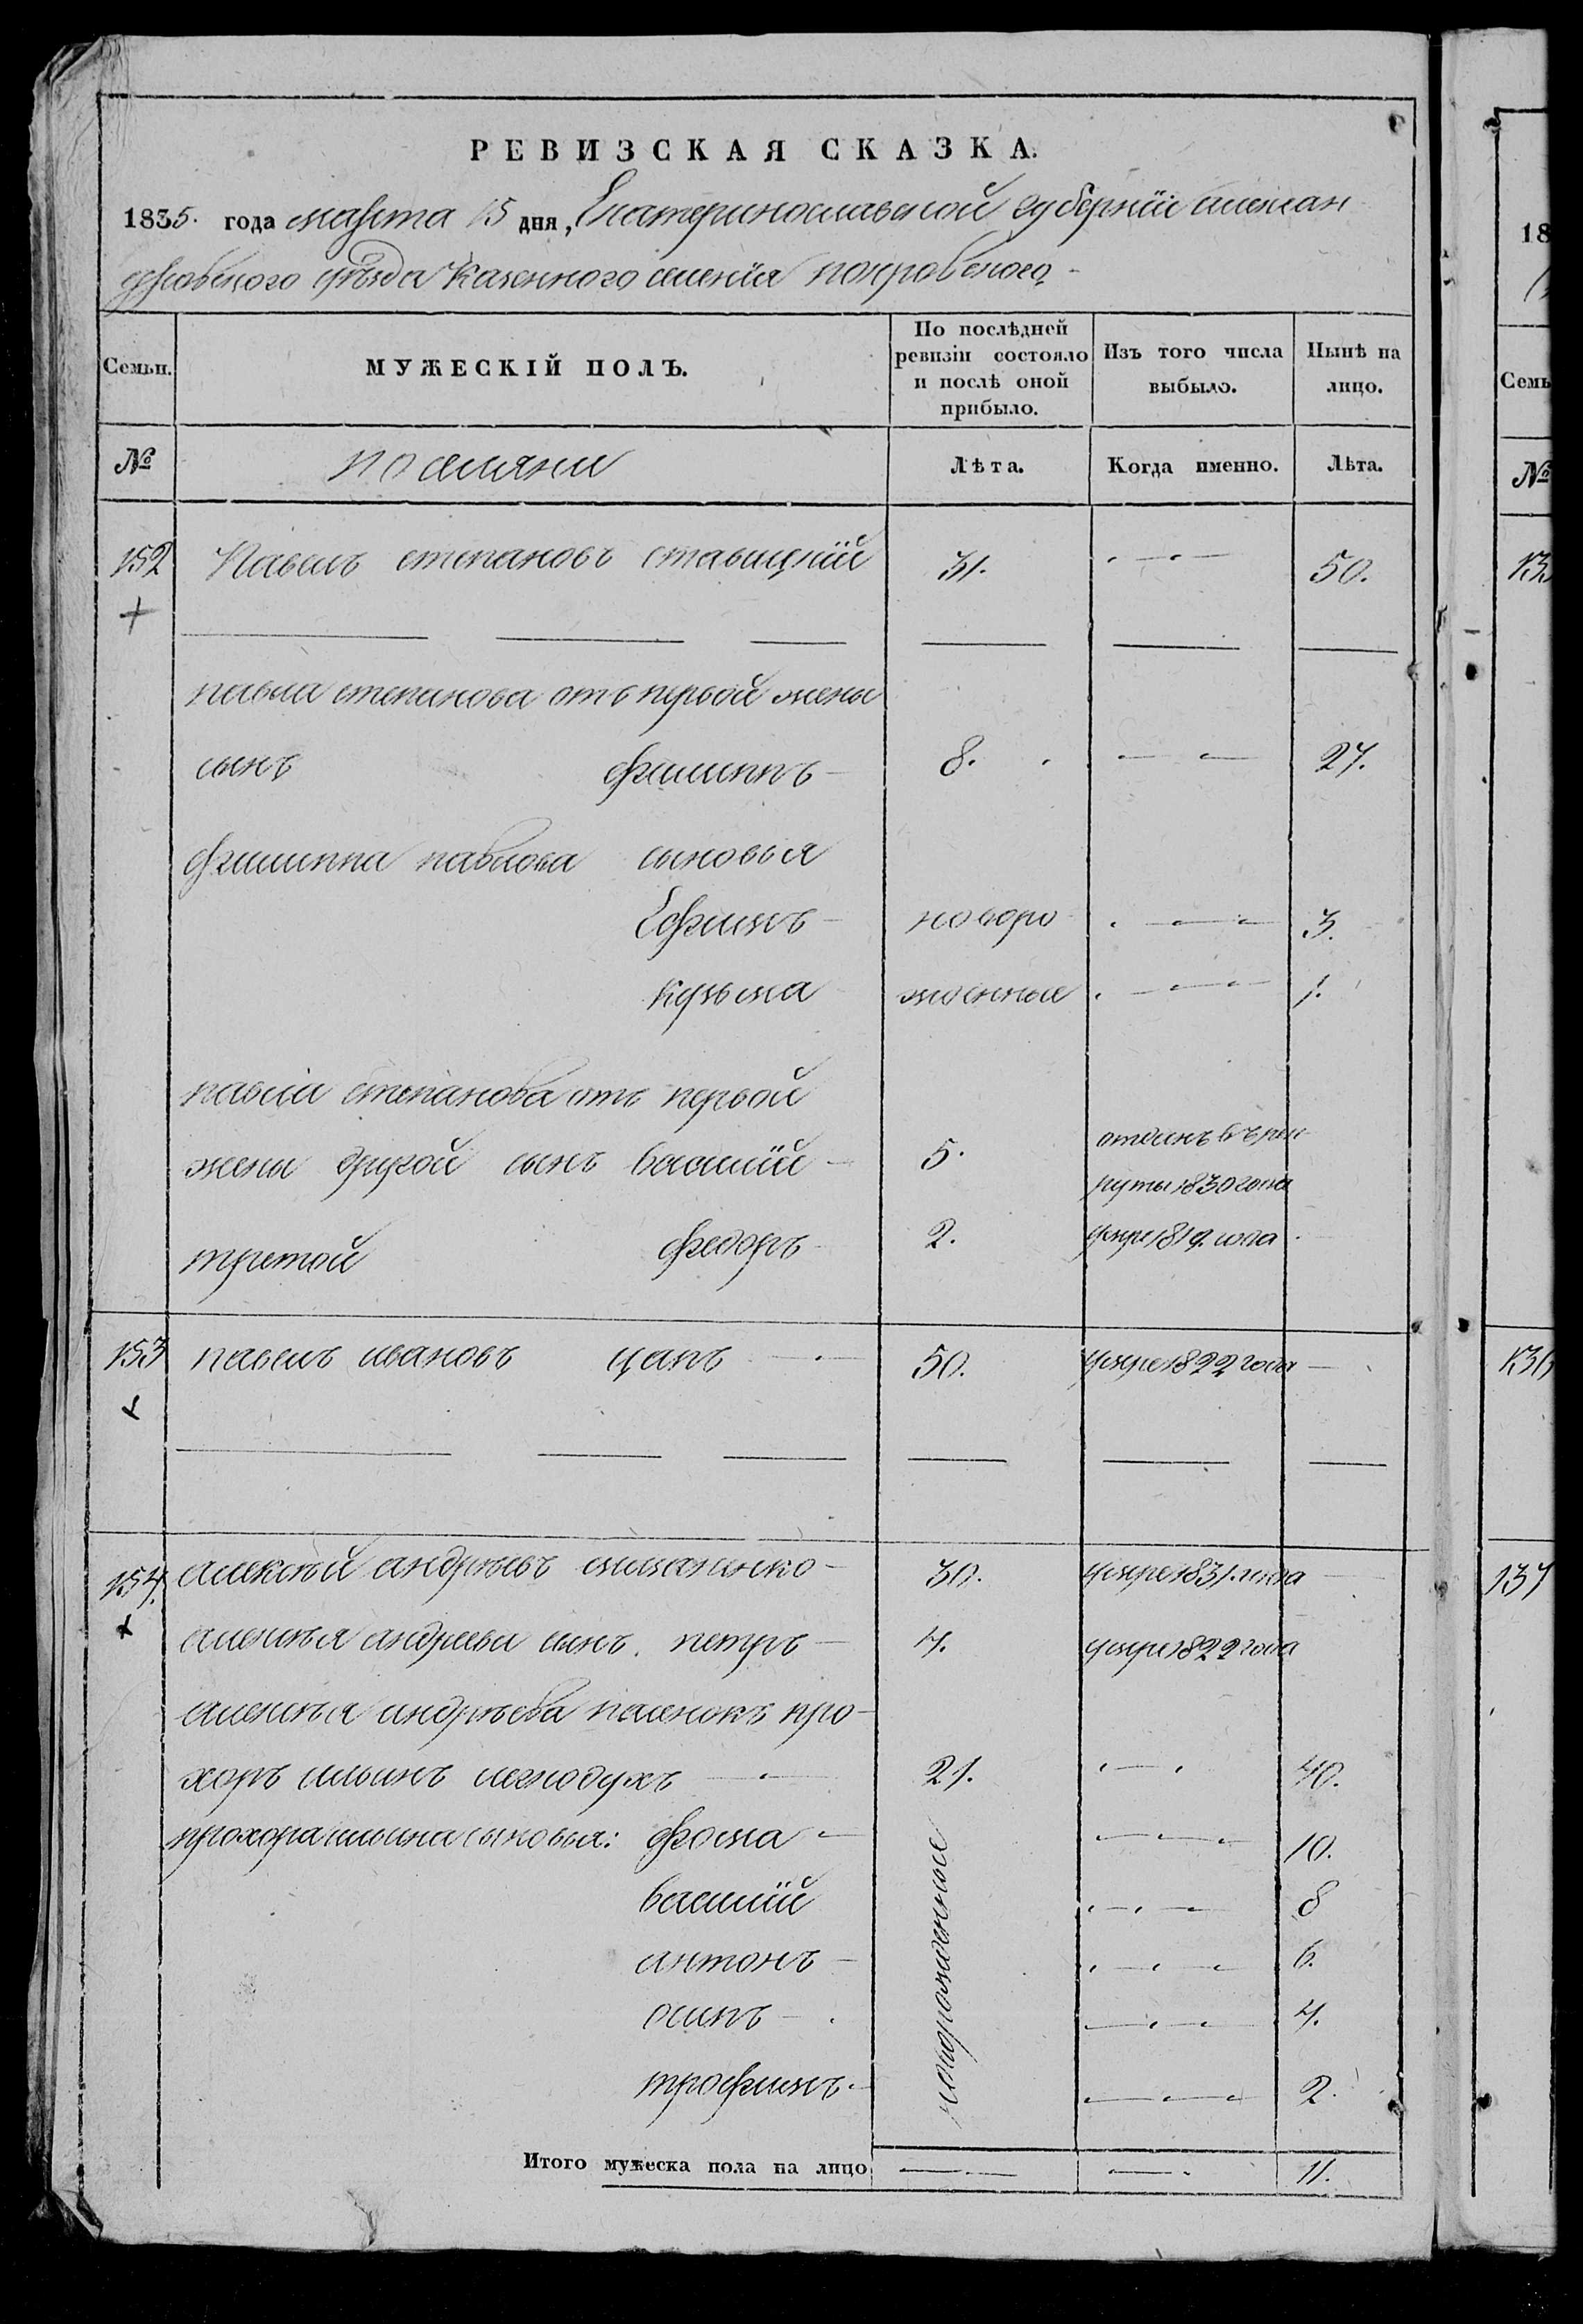 РЕВИЗСКАЯ СКАЗКА.
1835. года марта 15 дня, Екатеринославской губернїи алексан
дровского уѣзда казенного селенїя покровского
Семьи.
МУЖЕСКІЙ ПОЛЪ.
По послѣдней ревизіи состояло и послѣ оной прибыло.
Изъ того числа выбыло.
Нынѣ на лицо.
№
поселяни
Лѣта.
Когда именно.
Лѣта.
152 Павелъ степановъ ставицкїй 31. 50.
павла степанова отъ первой жены
сынъ филиппъ 8. 27.
филиппа павлова сыновья
Ефимъ новоро 3.
кузьма жденные 1.
павла степанова отъ первой
жены другой сынъ василїй 5. отданъ въ рек
руты 1830 года
третой федоръ 2. умре 1819. года
153 павелъ ивановъ цапъ 50. умре 1822 года
154. алексѣй андрѣевъ 30. умре 1831. года
алексѣя андреева сынъ. петръ 4. умре 1822 года
алексѣя андрѣева пасенокъ про
хоръ ильинъ легкодухъ 21. 40.
прохора ильина сыновья: фома 10.
новорожденные
василїй 8
антонъ 6.
осипъ 4.
трофимъ 2.
Итого мужеска пола на лицо 11.
18
Семь
№
135
136
137